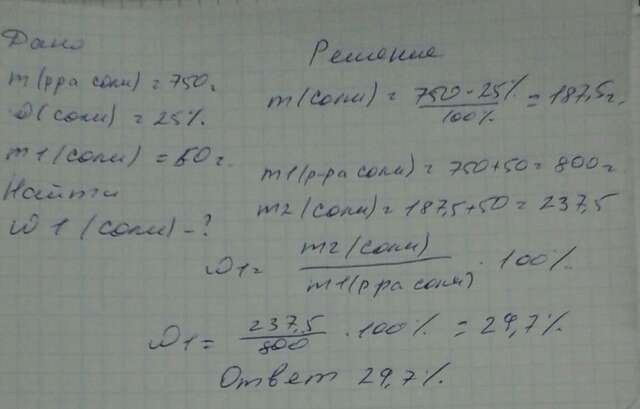 Дано
m(рра соли) = 750г
ω(соли) = 25%
m1(соли) = 50г
Найти
ω1(соли) - ?
Решение
m(соли) = 750 · 25% / 100% = 187,5г.
m1(р-ра соли) = 750+50 = 800г
m2(соли) = 187,5+50 = 237,5
ω1 = m2(соли) / m1(рра соли) · 100%
ω1 = 237,5 / 800 · 100% = 29,7%
Ответ 29,7%